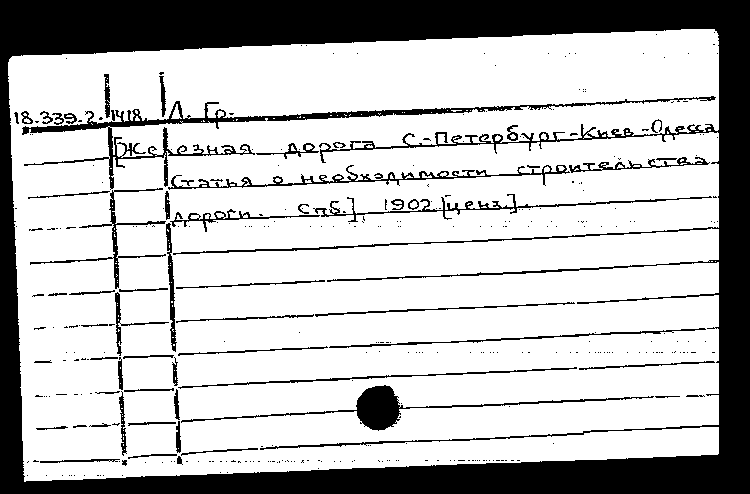 18.339.2.1418. Л. Гр.
[Железная дорога С.-Петербург-Киев-Одесса
Статья о необходимости строительства
дороги. Спб.], 1902 [ценз.].